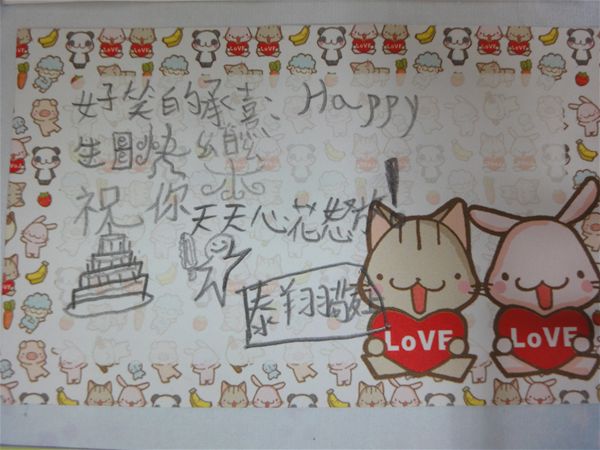 好笑的承熹: Happy
生日快樂
祝你天天心花怒放!
泰翔
LoVE LoVE